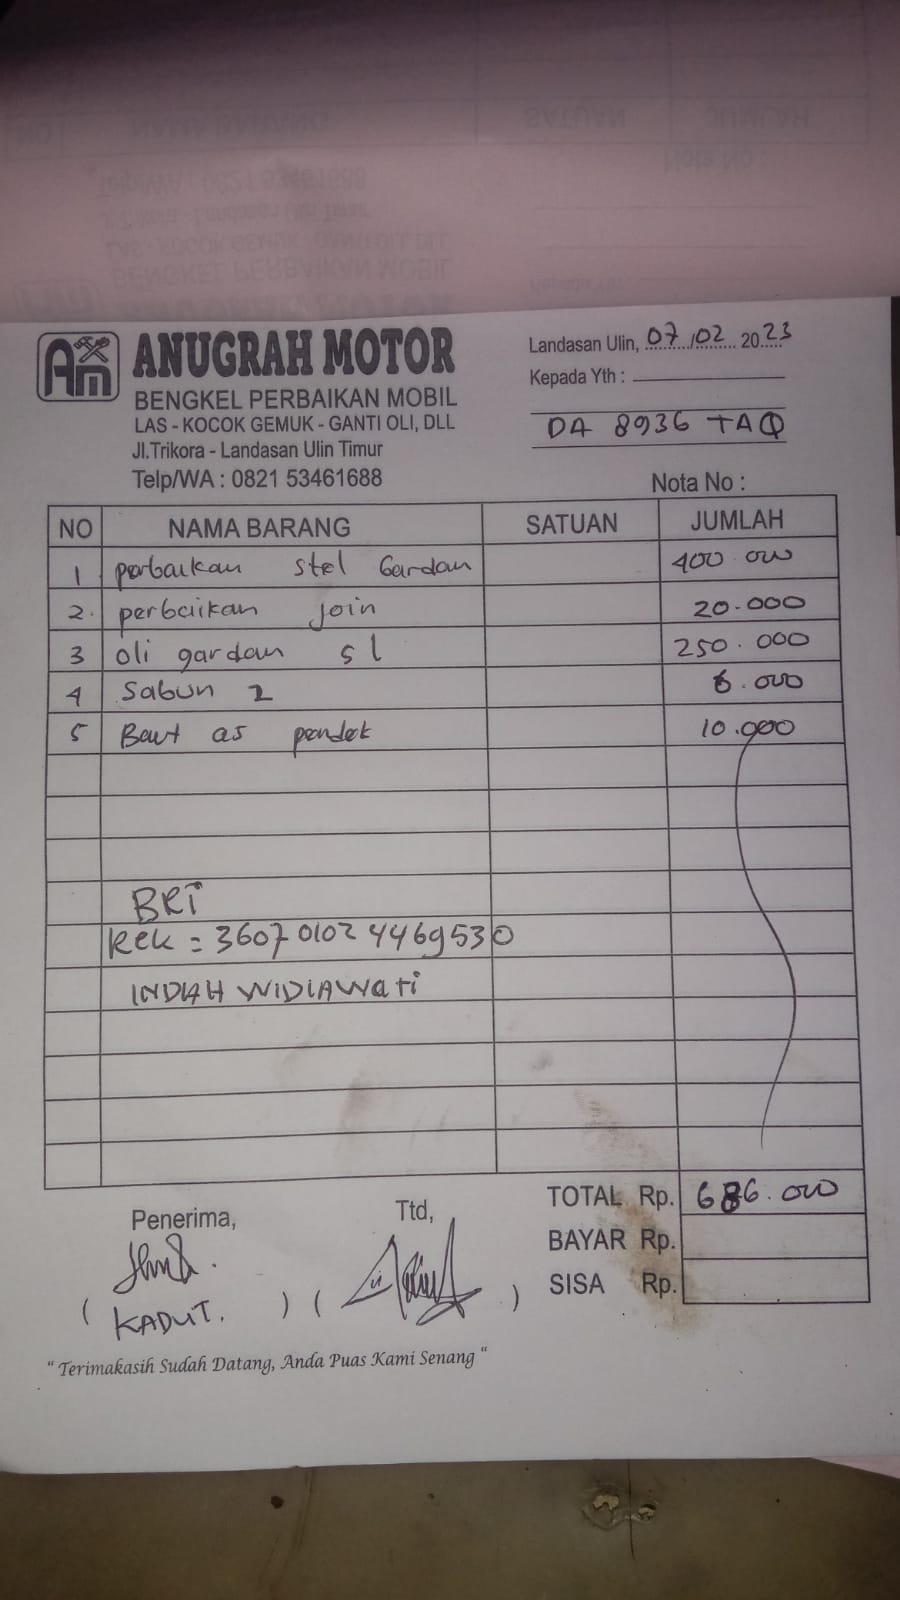 AM ANUGRAH MOTOR
BENGKEL PERBAIKAN MOBIL
LAS - KOCOK GEMUK - GANTI OLI, DLL
Jl.Trikora - Landasan Ulin Timur
Telp/WA : 0821 53461688
Landasan Ulin, 07/02 2023
Kepada Yth :
DA 8936 TAQ
Nota No :
NO NAMA BARANG SATUAN JUMLAH
1 perbaikan stel Gardan 400.000
2. perbaikan join 20.000
3 oli gardan 5 l 250.000
4 Sabun 2 6.000
5 Baut as pendek 10.000
BRI
Rek = 360701024469530
INDAH WIDIAWATI
TOTAL Rp. 686.000
BAYAR Rp.
SISA Rp.
Penerima, Ttd,
( KADUT. ) ( )
" Terimakasih Sudah Datang, Anda Puas Kami Senang "